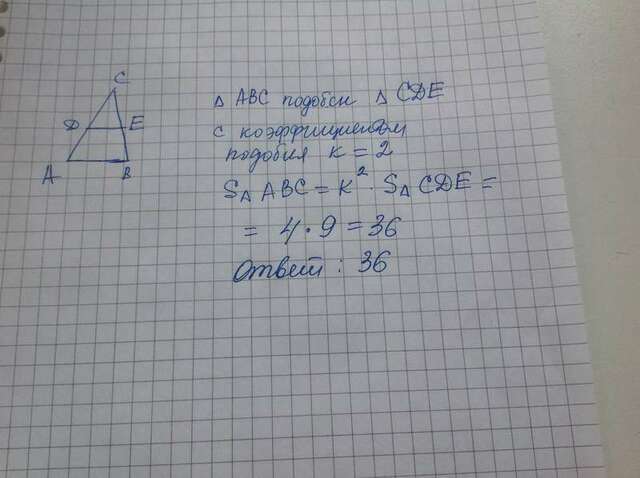 C
D E
A B
Δ ABC подобен Δ CDE
с коэффициентом
подобия к = 2
SΔ ABC = к² · SΔ CDE =
= 4 · 9 = 36
Ответ : 36